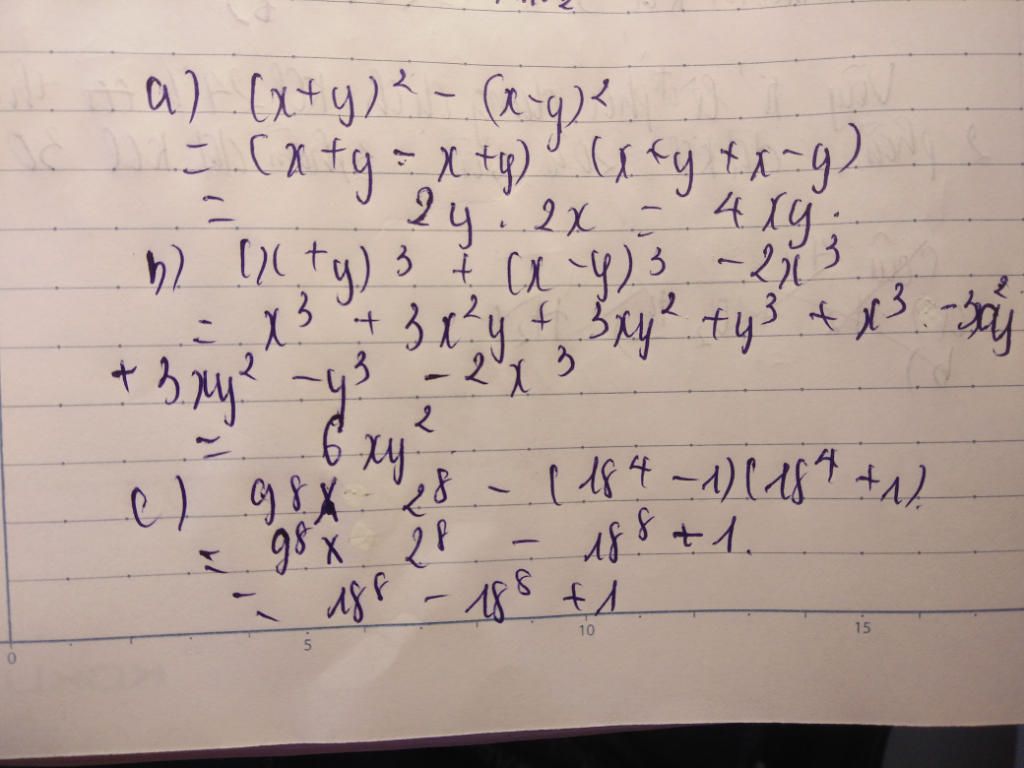 a) (x+y)² - (x-y)²
= (x+y - x+y) (x+y+x-y)
= 2y . 2x = 4xy.
b) (x+y)³ + (x-y)³ - 2x³
= x³ + 3x²y + 3xy² + y³ + x³ - 3x²y
+ 3xy² - y³ - 2x³
= 6xy²
c) 9⁸ x 2⁸ - (18⁴ - 1)(18⁴ + 1)
= 9⁸ x 2⁸ - 18⁸ + 1.
= 18⁸ - 18⁸ + 1
0 5 10 15